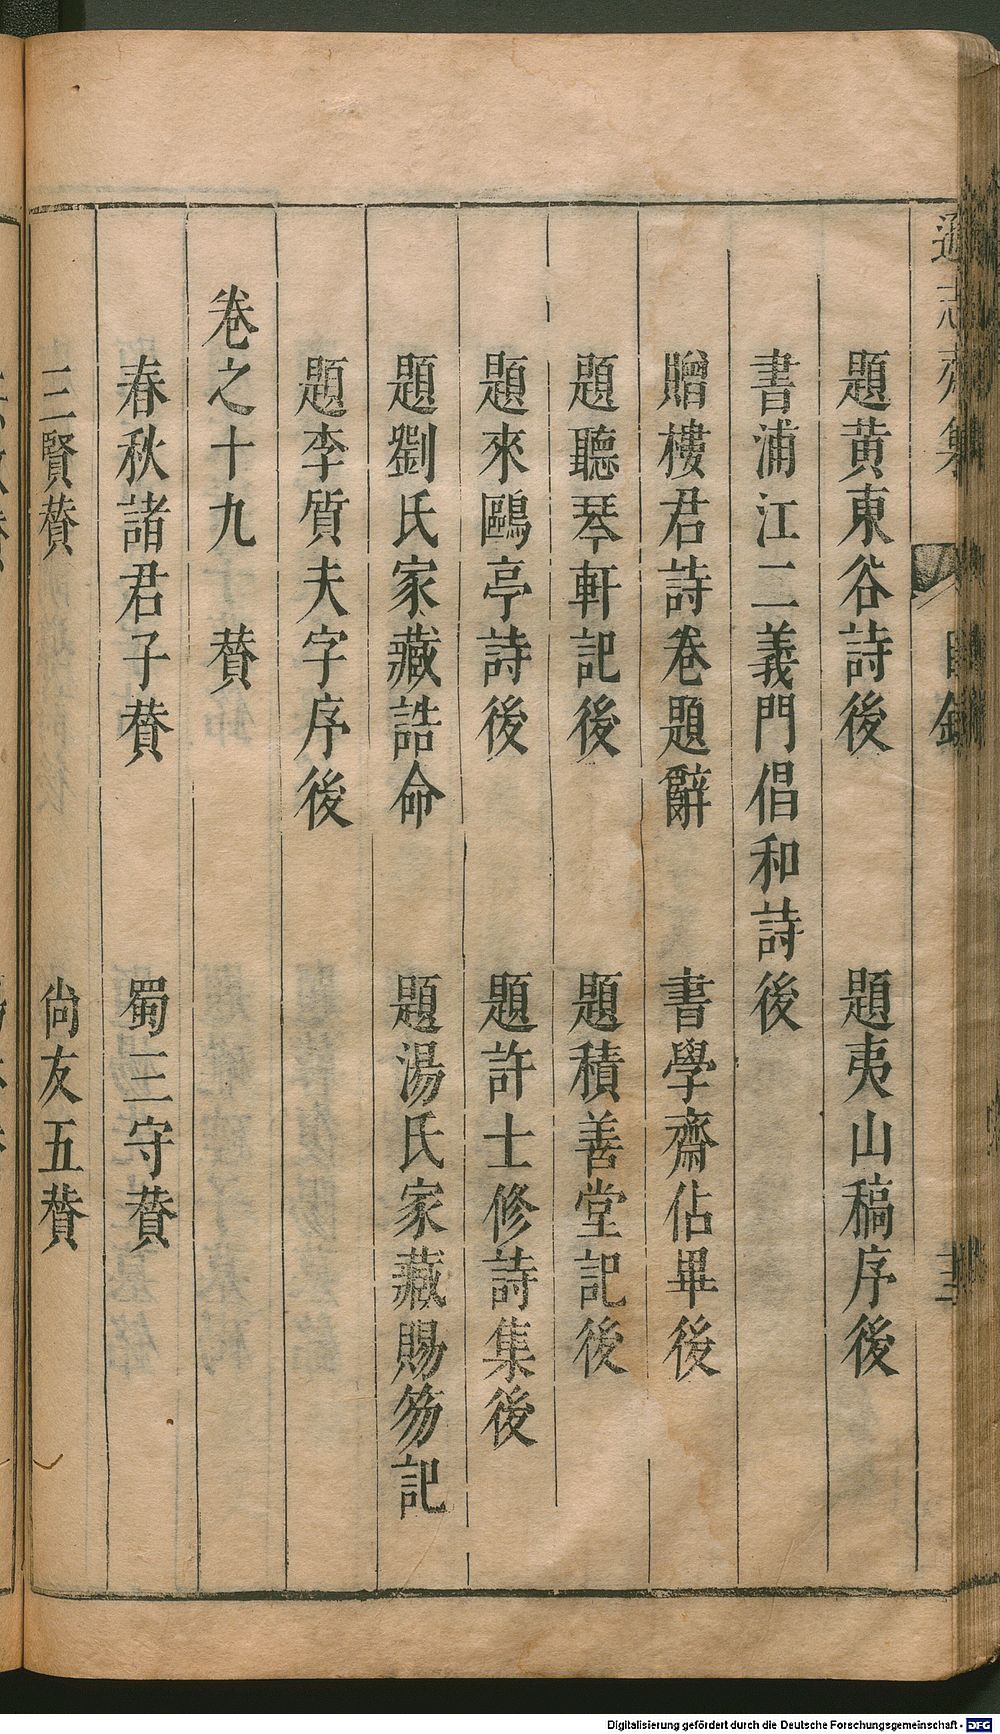 題黃東谷詩後　題夷山稿序後
書浦江二義門倡和詩後
贈樓君詩卷題辭　書學齋佔畢後
題聽琴軒記後　題積善堂記後
題來鷗亭詩後　題許士修詩集後
題劉氏家藏誥命　題湯氏家藏賜笏記
題李質夫字序後
卷之十九　贊
春秋諸君子贊　蜀三守贊
三賢贊　尚友五贊
Digitalisierung gefördert durch die Deutsche Forschungsgemeinschaft - DFG